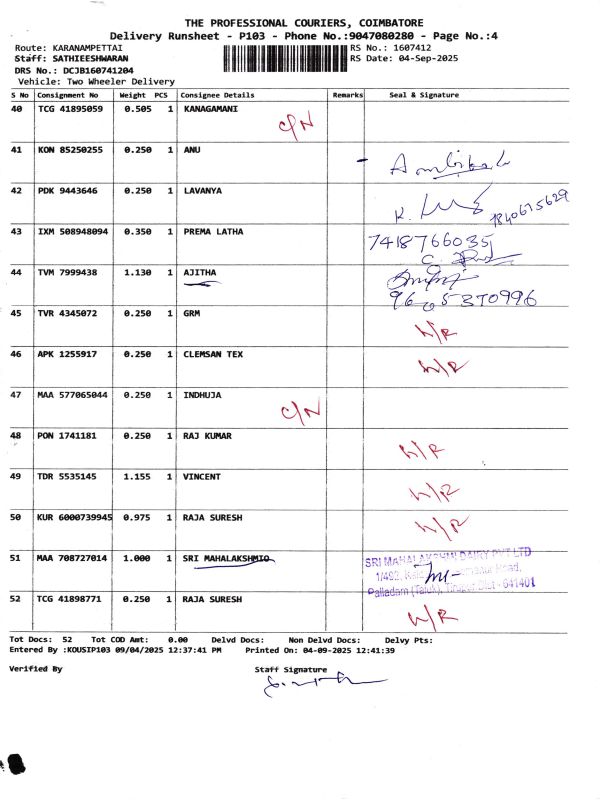 THE PROFESSIONAL COURIERS, COIMBATORE
Delivery Runsheet - P103 - Phone No.:9047080280 - Page No.:4
Route: KARANAMPETTAI RS No.: 1607412
Staff: SATHIEESHWARAN RS Date: 04-Sep-2025
DRS No.: DCJB160741204
Vehicle: Two Wheeler Delivery
S No Consignment No Weight PCS Consignee Details Remarks Seal & Signature
40 TCG 41895059 0.505 1 KANAGAMANI C/N
41 KON 85250255 0.250 1 ANU
42 PDK 9443646 0.250 1 LAVANYA
43 IXM 508948094 0.350 1 PREMA LATHA 7418766035
44 TVM 7999438 1.130 1 AJITHA
45 TVR 4345072 0.250 1 GRM
46 APK 1255917 0.250 1 CLEMSAN TEX
47 MAA 577065044 0.250 1 INDHUJA C/N
48 PON 1741181 0.250 1 RAJ KUMAR
49 TDR 5535145 1.155 1 VINCENT
50 KUR 6000739945 0.975 1 RAJA SURESH
51 MAA 708727014 1.000 1 SRI MAHALAKSHMIO
SRI MAHALAKSHMI DAIRY PVT LTD
Road,
Palladam (Taluk), Tirupur Dist - 641401
52 TCG 41898771 0.250 1 RAJA SURESH
Tot Docs: 52 Tot COD Amt: 0.00 Delvd Docs: Non Delvd Docs: Delvy Pts:
Entered By :KOUSIP103 09/04/2025 12:37:41 PM Printed On: 04-09-2025 12:41:39
Verified By Staff Signature